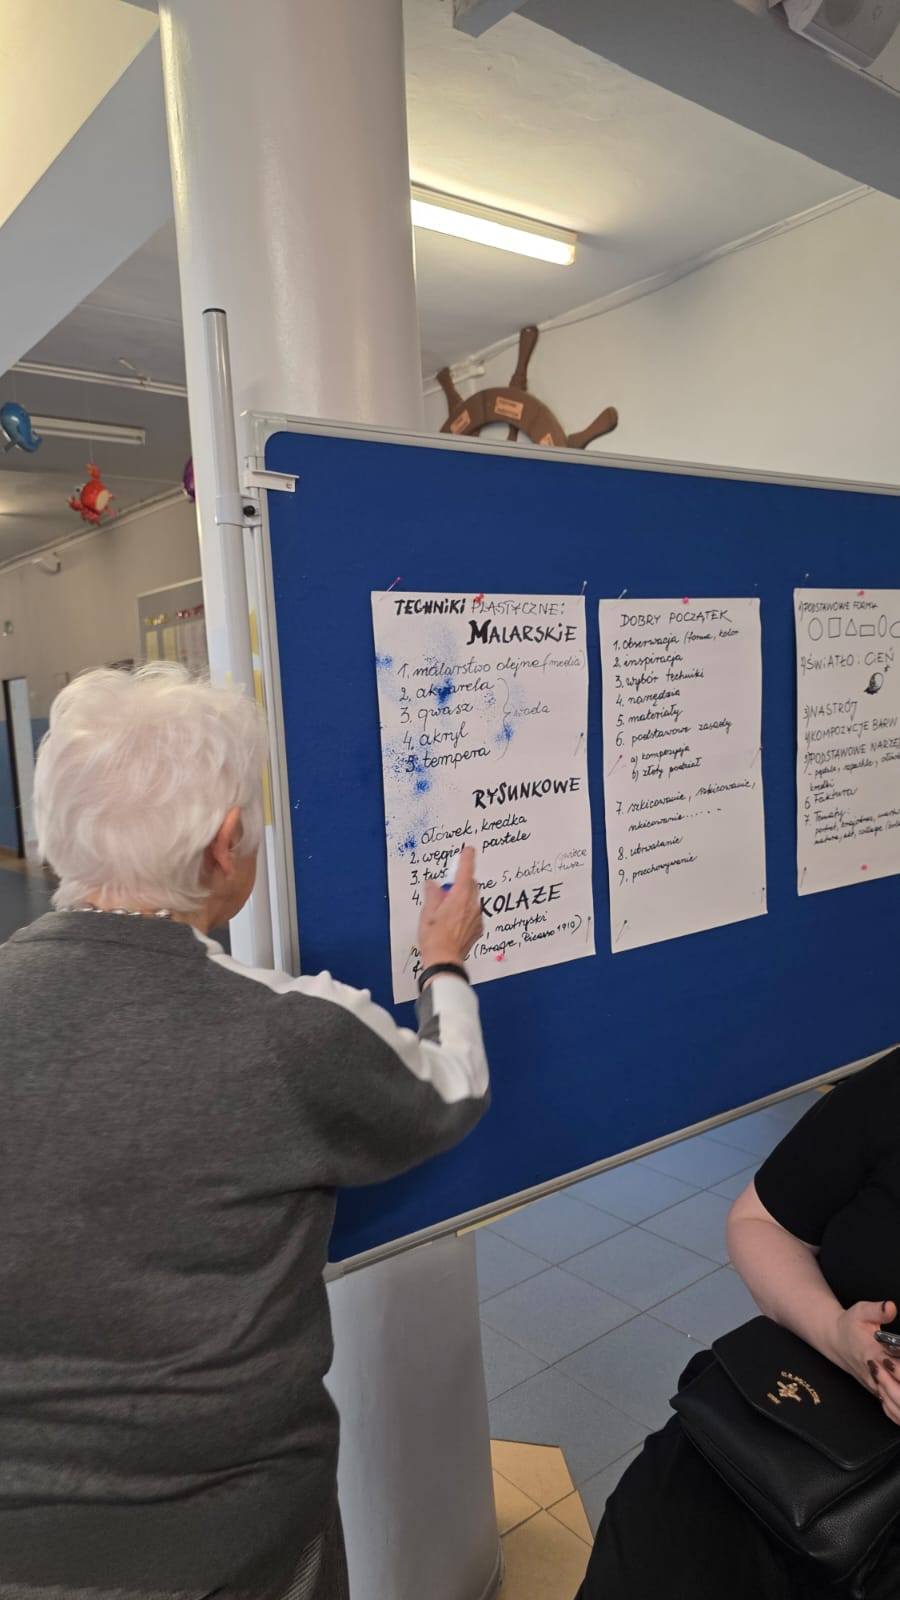 TECHNIKI PLASTYCZNE:
MALARSKIE
1. malarstwo olejne (media)
2. akwarela
3. gwasz
woda
4. akryl
5. tempera
RYSUNKOWE
ołówek, kredka
2. węgiel pastele
3. tusz
4. ne 5. batik (świece
tusz
KOLAŻE
, natryski
(Braque, Picasso 1910)
DOBRY POCZĄTEK
1. Obserwacja (forma, kolor
2 inspiracja
3. wybór techniki
4. narzędzia
5. materiały
6. podstawowe zasady
a) kompozycja
b) złoty podział
7. szkicowanie, szkicowanie,
szkicowanie......
8. utrwalanie
9. przechowywanie
1) PODSTAWOWE FORMY
2) ŚWIATŁO i CIEŃ
3) NASTRÓJ
4) KOMPOZYCJE BARW
5) PODSTAWOWE NARZĘ
- pędzle, szpachle, ołów
kredki
6 Faktura
7. Tematy:
portret,
natura, akt, collage